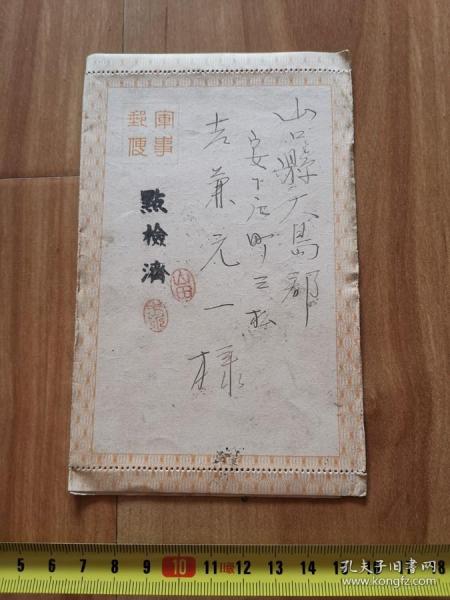 山口縣大島郡
安下庄町三松
吉兼元一様
軍事
郵便
點檢濟
山田
5 6 7 8 9 10 11 12 13 14 15 16 17 18
孔夫子旧书网
www.kongfz.com